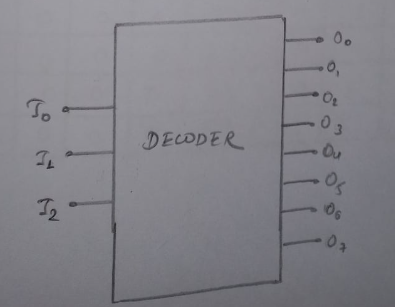 I0
I1
I2
DECODER
O0
O1
O2
O3
O4
O5
O6
O7